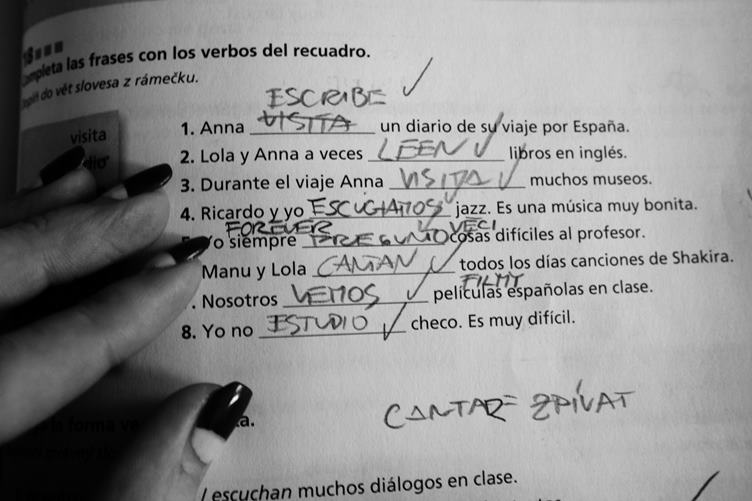 18
Completa las frases con los verbos del recuadro.
do vět slovesa z rámečku.
visita
ESCRIBE
1. Anna VISITA un diario de su viaje por España.
2. Lola y Anna a veces LEEN libros en inglés.
3. Durante el viaje Anna VISITA muchos museos.
4. Ricardo y yo ESCUCHAMOS jazz. Es una música muy bonita.
FOREVER VECI
Yo siempre PREGUNTO cosas difíciles al profesor.
Manu y Lola CANTAN todos los días canciones de Shakira.
FILMY
. Nosotros VEMOS películas españolas en clase.
8. Yo no ESTUDIO checo. Es muy difícil.
CANTAR = ZPÍVAT
la forma
a.
escuchan muchos diálogos en clase.